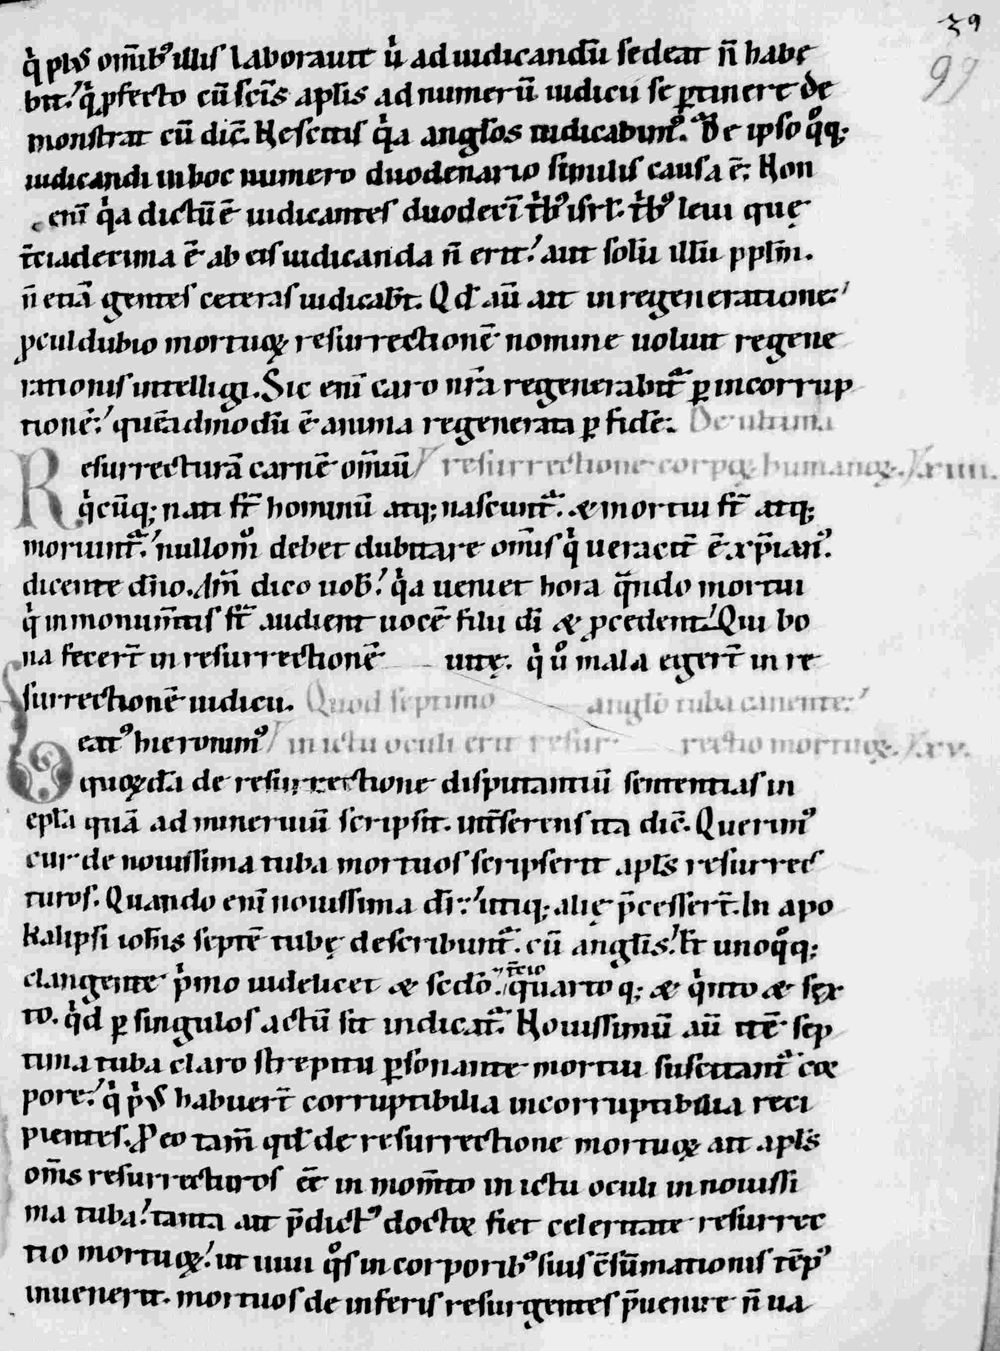 39
99
q̇ plus om̄ib; illis laborauit ů ad iudicandū sedeat n̄ habe
bit? q̇ pfecto cū scīs aplīs ad numerū iudicū se ptinere de
monstrat cū dic̄. Nescitis q̇a angłos iudicabim᷒. De ipso q̊q;
iudicandi in hoc numero duodenario similis causa ē. Non
enī q̇a dictū ē iudicantes duodecī t̄b᷒ isrł. t̄b᷒ leui quę
t̄ciadecima ē ab eis iudicanda n̄ erit! aut solū illū pplm̄.
n̄ etiā gentes ceteras iudicab̄t. Qd̄ aū ait in regeneratione!
pculdubio mortuoꝝ resurrectionē nomine uoluit regene
rationis intelligi. Sic enī caro nr̄a regenerabit᷑ p incorrup
tionē! quēadmodū ē anima regenerata p fidē. De ultima
Resurrecturā carnē om̄iū / resurrectione corpoꝝ humanoꝝ. xxiiii.
q̇cūq; nati st̄ hominū atq; nascunt᷑. & mortui st̄ atq;
moriunt᷑! nullom̊ debet dubitare om̄is q̇ ueracit̄ ē xp̄ian᷒.
dicente dn̄o. Am̄ dico uob̄! q̇a ueniet hora q̄ndo mortui
q̇ in monum̄tis st̄ audient uocē filii dī & pcedent! Qui bo
na fecer̄t in resurrectionē uitę. q̇ ů mala eger̄t in re
surrectionē iudicii. Quod septimo anglo tuba canente!
Beat᷒ hieronim᷒ / in ictu oculi erit resur rectio mortuoꝝ. xxv.
quoꝝdā de resurrectione disputantiū sententias in
epła quā ad mineruiū scripsit. int̄serens ita dic̄. Querim᷒
cur de nouissima tuba mortuos scripserit apłs resurrec
turos. Quando enī nouissima dr̄! utiq; alię p̄cesser̄t. In apo
kalipsi ioh̄is septē tubę describunt᷑. cū angłis! & unoq̊q;
clangente ṗmo uidelicet & scdō. t̄cio quarto q; & q̇nto & sex
to. q̇d p singulos actū sit indicat᷑. Nouissimū aū itē sep
tima tuba claro strepitu psonante mortui suscitant᷑ cor
pore! q̇ ṗus habuer̄t corruptibilia incorruptibilia reci
pientes. P eo tam̄ qd̄ de resurrectione mortuoꝝ ait apłs
om̄s resurrecturos ēē in mom̄to in ictu oculi in nouissi
ma tuba! tanta ait p̄dict᷒ doctor fiet celeritate resurrec
tio mortuoꝝ! ut uiui q̊s in corporib; suis c̄sūmationis tēp᷒
inuenerit. mortuos de inferis resurgentes p̄uenire n̄ ua